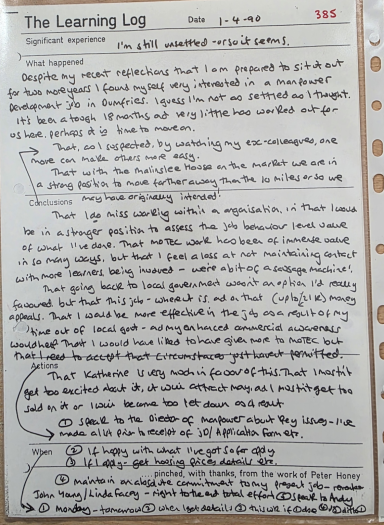 The Learning Log Date 1-4-90 385
Significant experience I'm still unsettled - or so it seems.
What happened
Despite my recent reflections that I am prepared to sit it out
for two more years I found myself very interested in a manpower
Development job in Dumfries. I guess I'm not as settled as I thought.
It's been a tough 18 months and very little has worked out for
us here, perhaps it is time to move on.
That, as I suspected, by watching my exc-colleagues, one
move can make others more easy.
That with the Malinslee House on the market we are in
a strong position to move farther away than the 10 miles or so we
Conclusions may have originally intended!
That I do miss working within a organisation, in that I would
be in a stronger position to assess the job behaviour level value
of what I've done. That MOTEC work has been of immense value
in so many ways, but that I feel a loss at not maintaining contact
with more learners being involved - we're a bit of a sausage machine!
That going back to local government won't an option I'd really
favoured but that this job - where it is, and on that (up to/21k) money
appeals. That I would be more effective in the job as a result of my
time out of local govt - and my enhanced commercial awareness
would help. That I would have liked to have given more to MOTEC but
that I need to accept that circumstances just haven't permitted.
Actions
That Katherine is very much in favour of this. That I mustn't
get too excited about it, it will attract many, and I mustn't get too
sold on it or I will become too let down as a result
① Speak to the Director of manpower about key issues - I've
made a list prior to receipt of JD/Application form etc.
When ② If happy with what I've got so far apply
③ If I apply - get housing prices details etc.
pinched, with thanks, from the work of Peter Honey
④ maintain an absolute commitment to my present job -
John Hong/Linda Facey - right to the end total effort ⑤ Speak to Andy
① Monday - tomorrow ② when I get details ③ this wk if I do